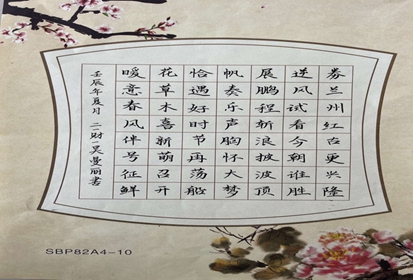 券兰州红古更兴隆
逆风试看今朝谁胜
展鹏程斩浪披波顶
帆奏乐声胸怀大梦
恰遇好时节再荡船
花草木喜新萌召开
暖意春风伴号征鲜
壬辰年夏月 二财一吴曼丽书
SBP82A4-10